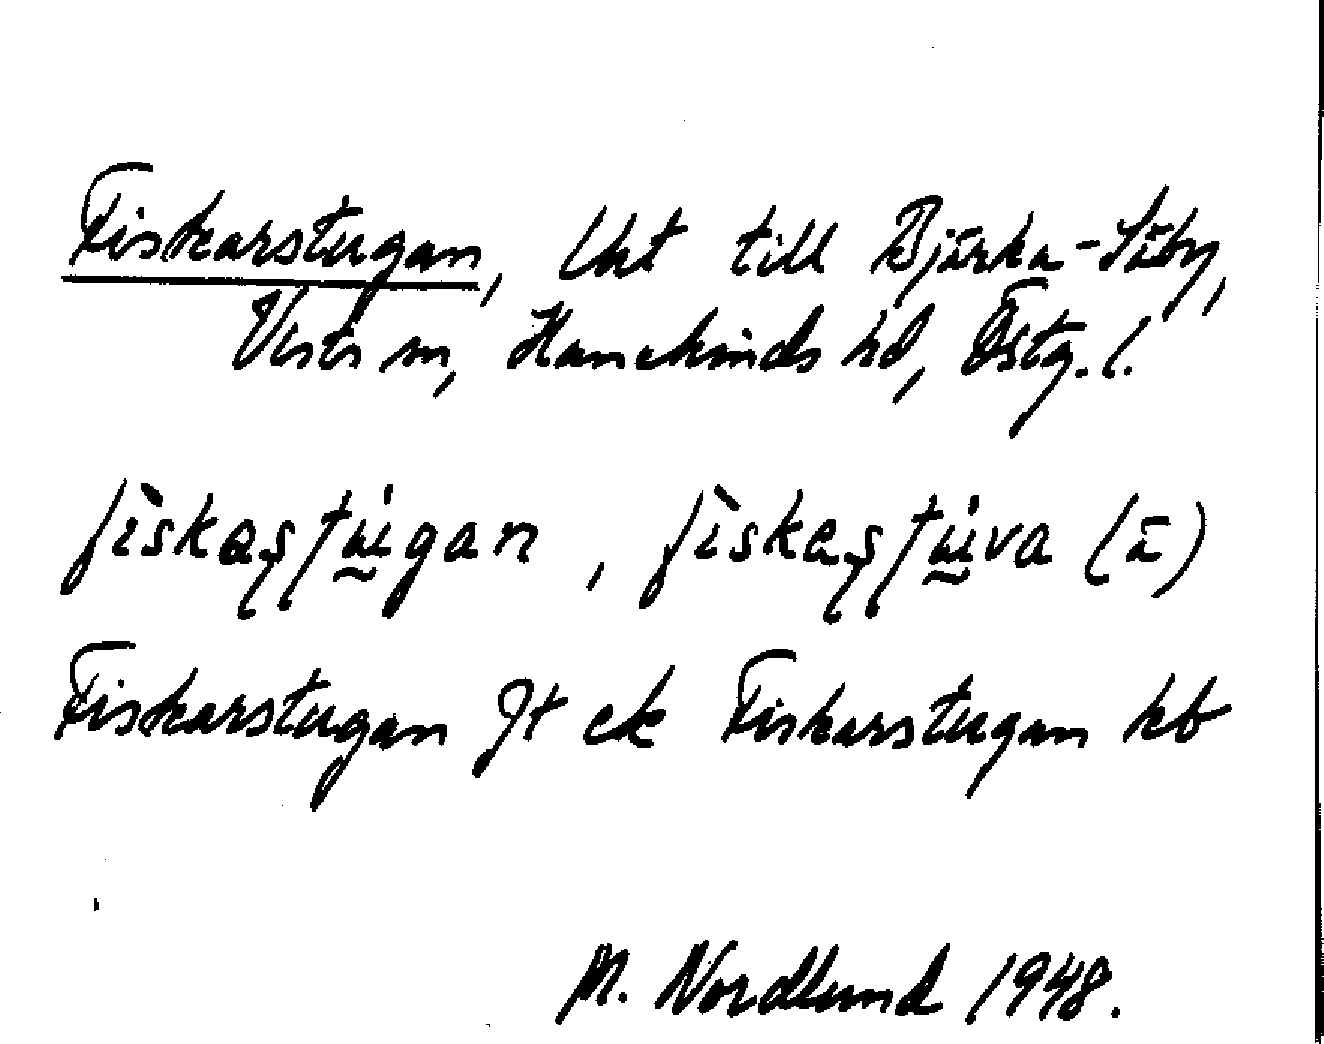 Fiskarstugan, lht till Bjärka-Säby,
Vists sn, Hanekinds hd, Östg. l.
fiskaʂtugan, fiskaʂtuva (ä)
Fiskarstugan Jt ek Fiskarstugan kb
M. Nordlund 1948.